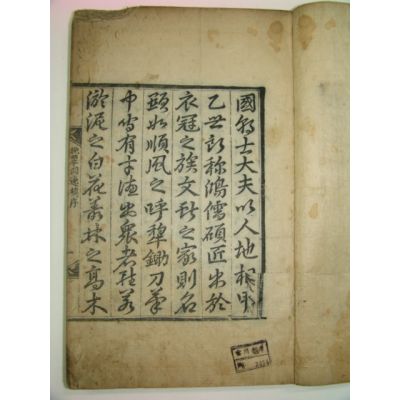 國朝士大夫以人地相甲
乙世所称鴻儒碩匠出於
衣冠之族文献之家則名
顯如順風之呼犂鋤刀筆
中有才德出衆者若
淤泥之白花叢林之高木
序